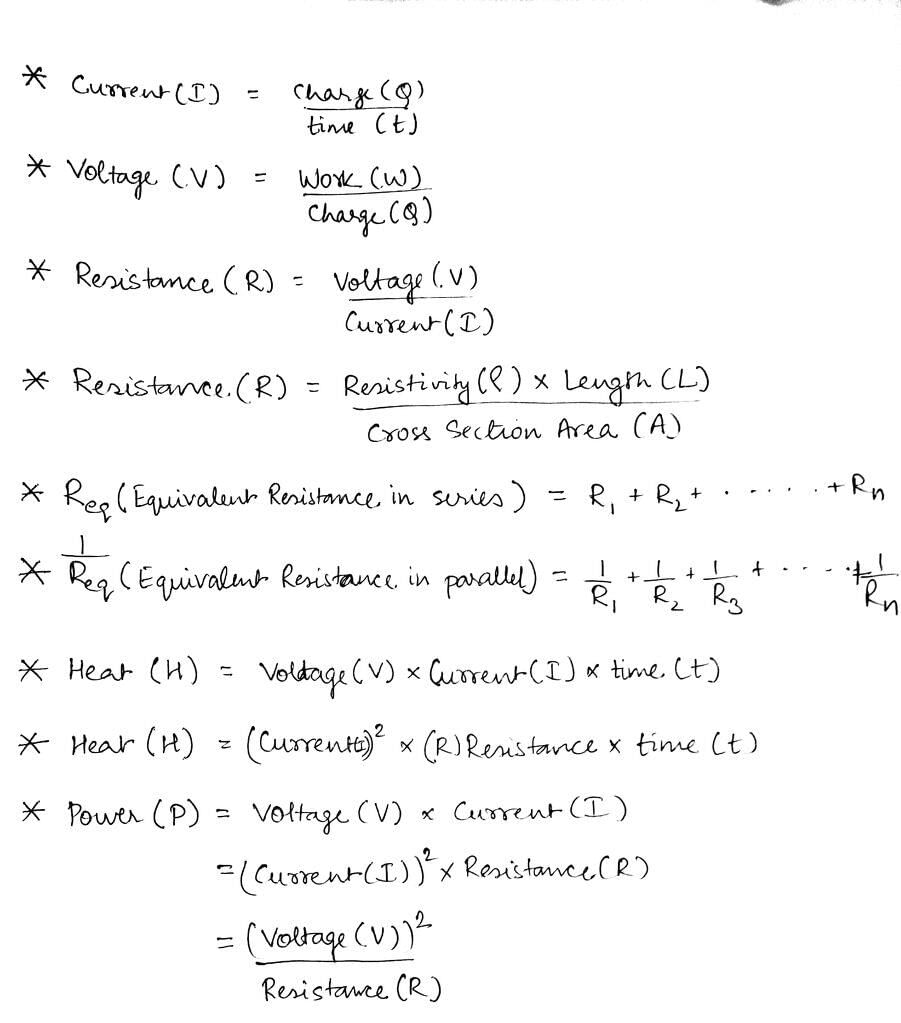 * Current (I) = Charge (Q)
time (t)
* Voltage (V) = Work (W)
Charge (Q)
* Resistance (R) = Voltage (V)
Current (I)
* Resistance (R) = Resistivity (ρ) × Length (L)
Cross Section Area (A)
* Req (Equivalent Resistance in series) = R₁ + R₂ + ...... + Rn
* 1/Req (Equivalent Resistance in parallel) = 1/R₁ + 1/R₂ + 1/R₃ + ..... + 1/Rn
* Heat (H) = Voltage (V) × Current (I) × time (t)
* Heat (H) = (Current(I))² × (R) Resistance × time (t)
* Power (P) = Voltage (V) × Current (I)
= (Current (I))² × Resistance (R)
= (Voltage (V))²
Resistance (R)